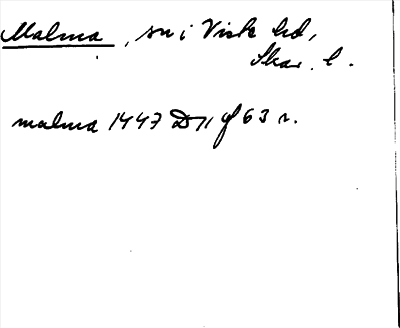 Malma, sn i Viste hd,
Skar. l.
malma 1447 D 11 gf 63 r.